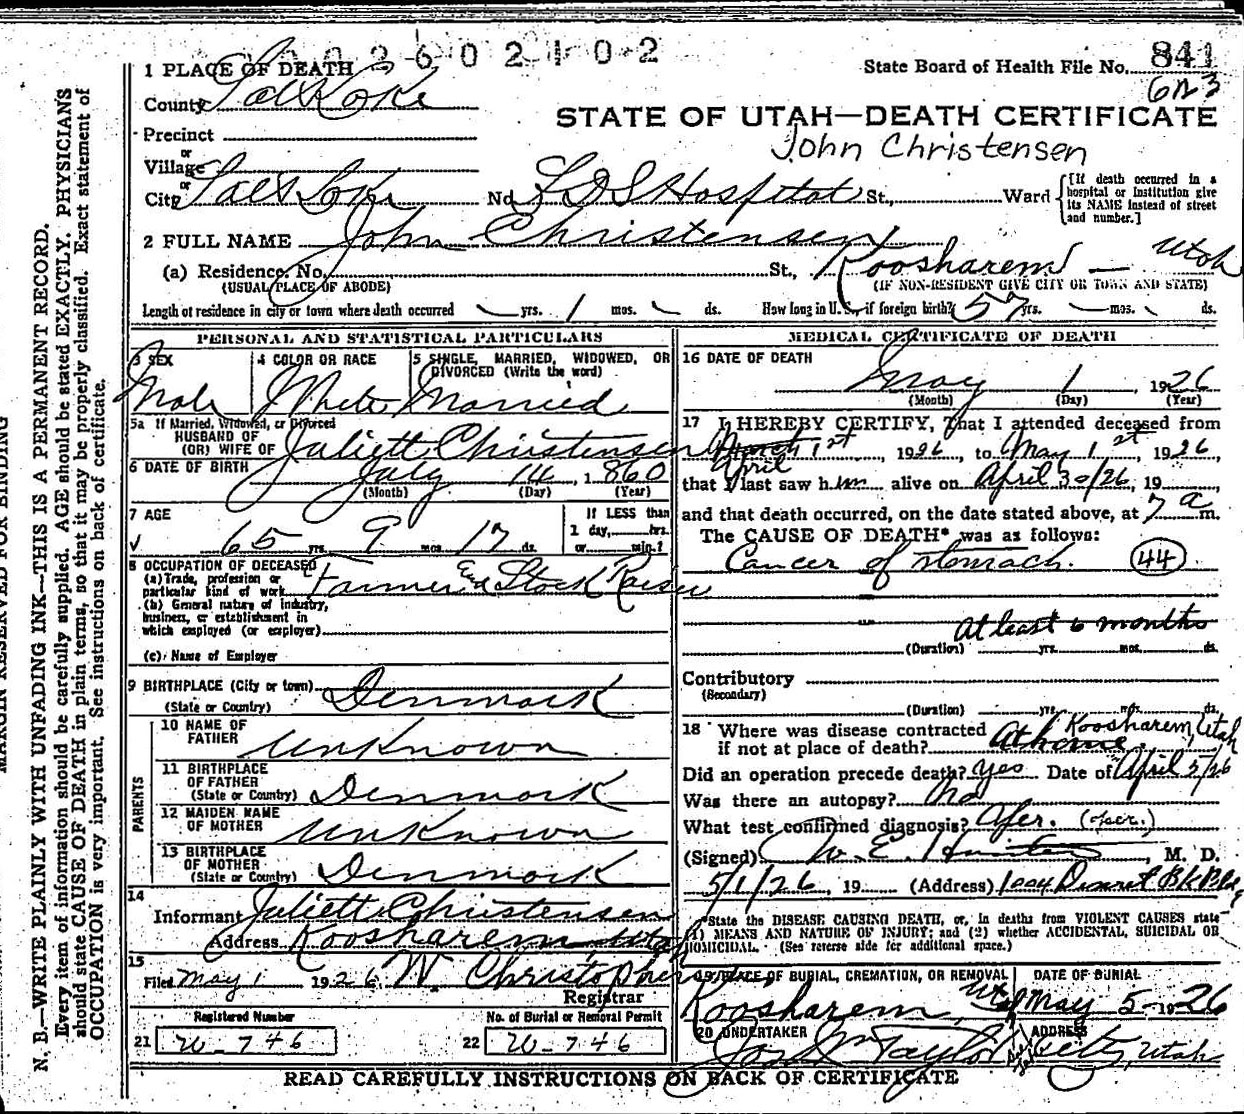 2602102
1 PLACE OF DEATH
State Board of Health File No. 841
County Salt Lake
STATE OF UTAH—DEATH CERTIFICATE
Precinct
John Christensen
or
Village
or
City Salt Lake No. LDS Hospital St., Ward
[If death occurred in a hospital or institution give its NAME instead of street and number.]
2 FULL NAME John Christensen
(a) Residence. No. St., Koosharem — Utah
(USUAL PLACE OF ABODE) (IF NON-RESIDENT GIVE CITY OR TOWN AND STATE)
Length of residence in city or town where death occurred yrs. 1 mos. ds. How long in U. S., if foreign birth? 57 yrs. mos. ds.
PERSONAL AND STATISTICAL PARTICULARS
3 SEX 4 COLOR OR RACE 5 SINGLE, MARRIED, WIDOWED, OR DIVORCED (Write the word)
Male White Married
5a If Married, Widowed, or Divorced
HUSBAND OF
(OR) WIFE OF Juliett Christensen
6 DATE OF BIRTH July 14, 1860
(Month) (Day) (Year)
7 AGE If LESS than
1 day, hrs.
65 yrs. 9 mos. 17 ds. or min.?
8 OCCUPATION OF DECEASED
(a) Trade, profession or
particular kind of work Farmer and Stock Raiser
(b) General nature of industry,
business, or establishment in
which employed (or employer)
(c) Name of Employer
9 BIRTHPLACE (City or town)
(State or Country) Denmark
PARENTS
10 NAME OF
FATHER Unknown
11 BIRTHPLACE
OF FATHER
(State or Country) Denmark
12 MAIDEN NAME
OF MOTHER Unknown
13 BIRTHPLACE
OF MOTHER
(State or Country) Denmark
14
Informant Juliett Christensen
Address Koosharem Utah
15
Filed May 1 1926 W. Christopherson
Registrar
Registered Number No. of Burial or Removal Permit
21 W-746 22 W-746
MEDICAL CERTIFICATE OF DEATH
16 DATE OF DEATH
May 1, 1926
(Month) (Day) (Year)
17 I HEREBY CERTIFY, That I attended deceased from
March 1st, 1926, to May 1st, 1926,
April
that I last saw him alive on April 30/26, 19
and that death occurred, on the date stated above, at 7 a m.
The CAUSE OF DEATH* was as follows:
Cancer of stomach. 44
At least 6 months
(Duration) yrs. mos. ds.
Contributory
(Secondary)
(Duration) yrs. mos. ds.
18 Where was disease contracted Koosharem, Utah
if not at place of death? At home.
Did an operation precede death? Yes Date of April 5/26
Was there an autopsy? No
What test confirmed diagnosis? (oper.)
(Signed) W. E., M. D.
5/1/26, 19 (Address) 1004 Deseret Bk Bldg
*State the DISEASE CAUSING DEATH, or, in deaths from VIOLENT CAUSES state
(1) MEANS AND NATURE OF INJURY; and (2) whether ACCIDENTAL, SUICIDAL OR
HOMICIDAL. (See reverse side for additional space.)
19 PLACE OF BURIAL, CREMATION, OR REMOVAL DATE OF BURIAL
Koosharem, Utah May 5 - 1926
20 UNDERTAKER ADDRESS
Taylor City, Utah
READ CAREFULLY INSTRUCTIONS ON BACK OF CERTIFICATE
MARGIN RESERVED FOR BINDING
N. B.—WRITE PLAINLY WITH UNFADING INK—THIS IS A PERMANENT RECORD.
Every item of information should be carefully supplied. AGE should be stated EXACTLY. PHYSICIANS
should state CAUSE OF DEATH in plain terms, so that it may be properly classified. Exact statement of
OCCUPATION is very important. See instructions on back of certificate.